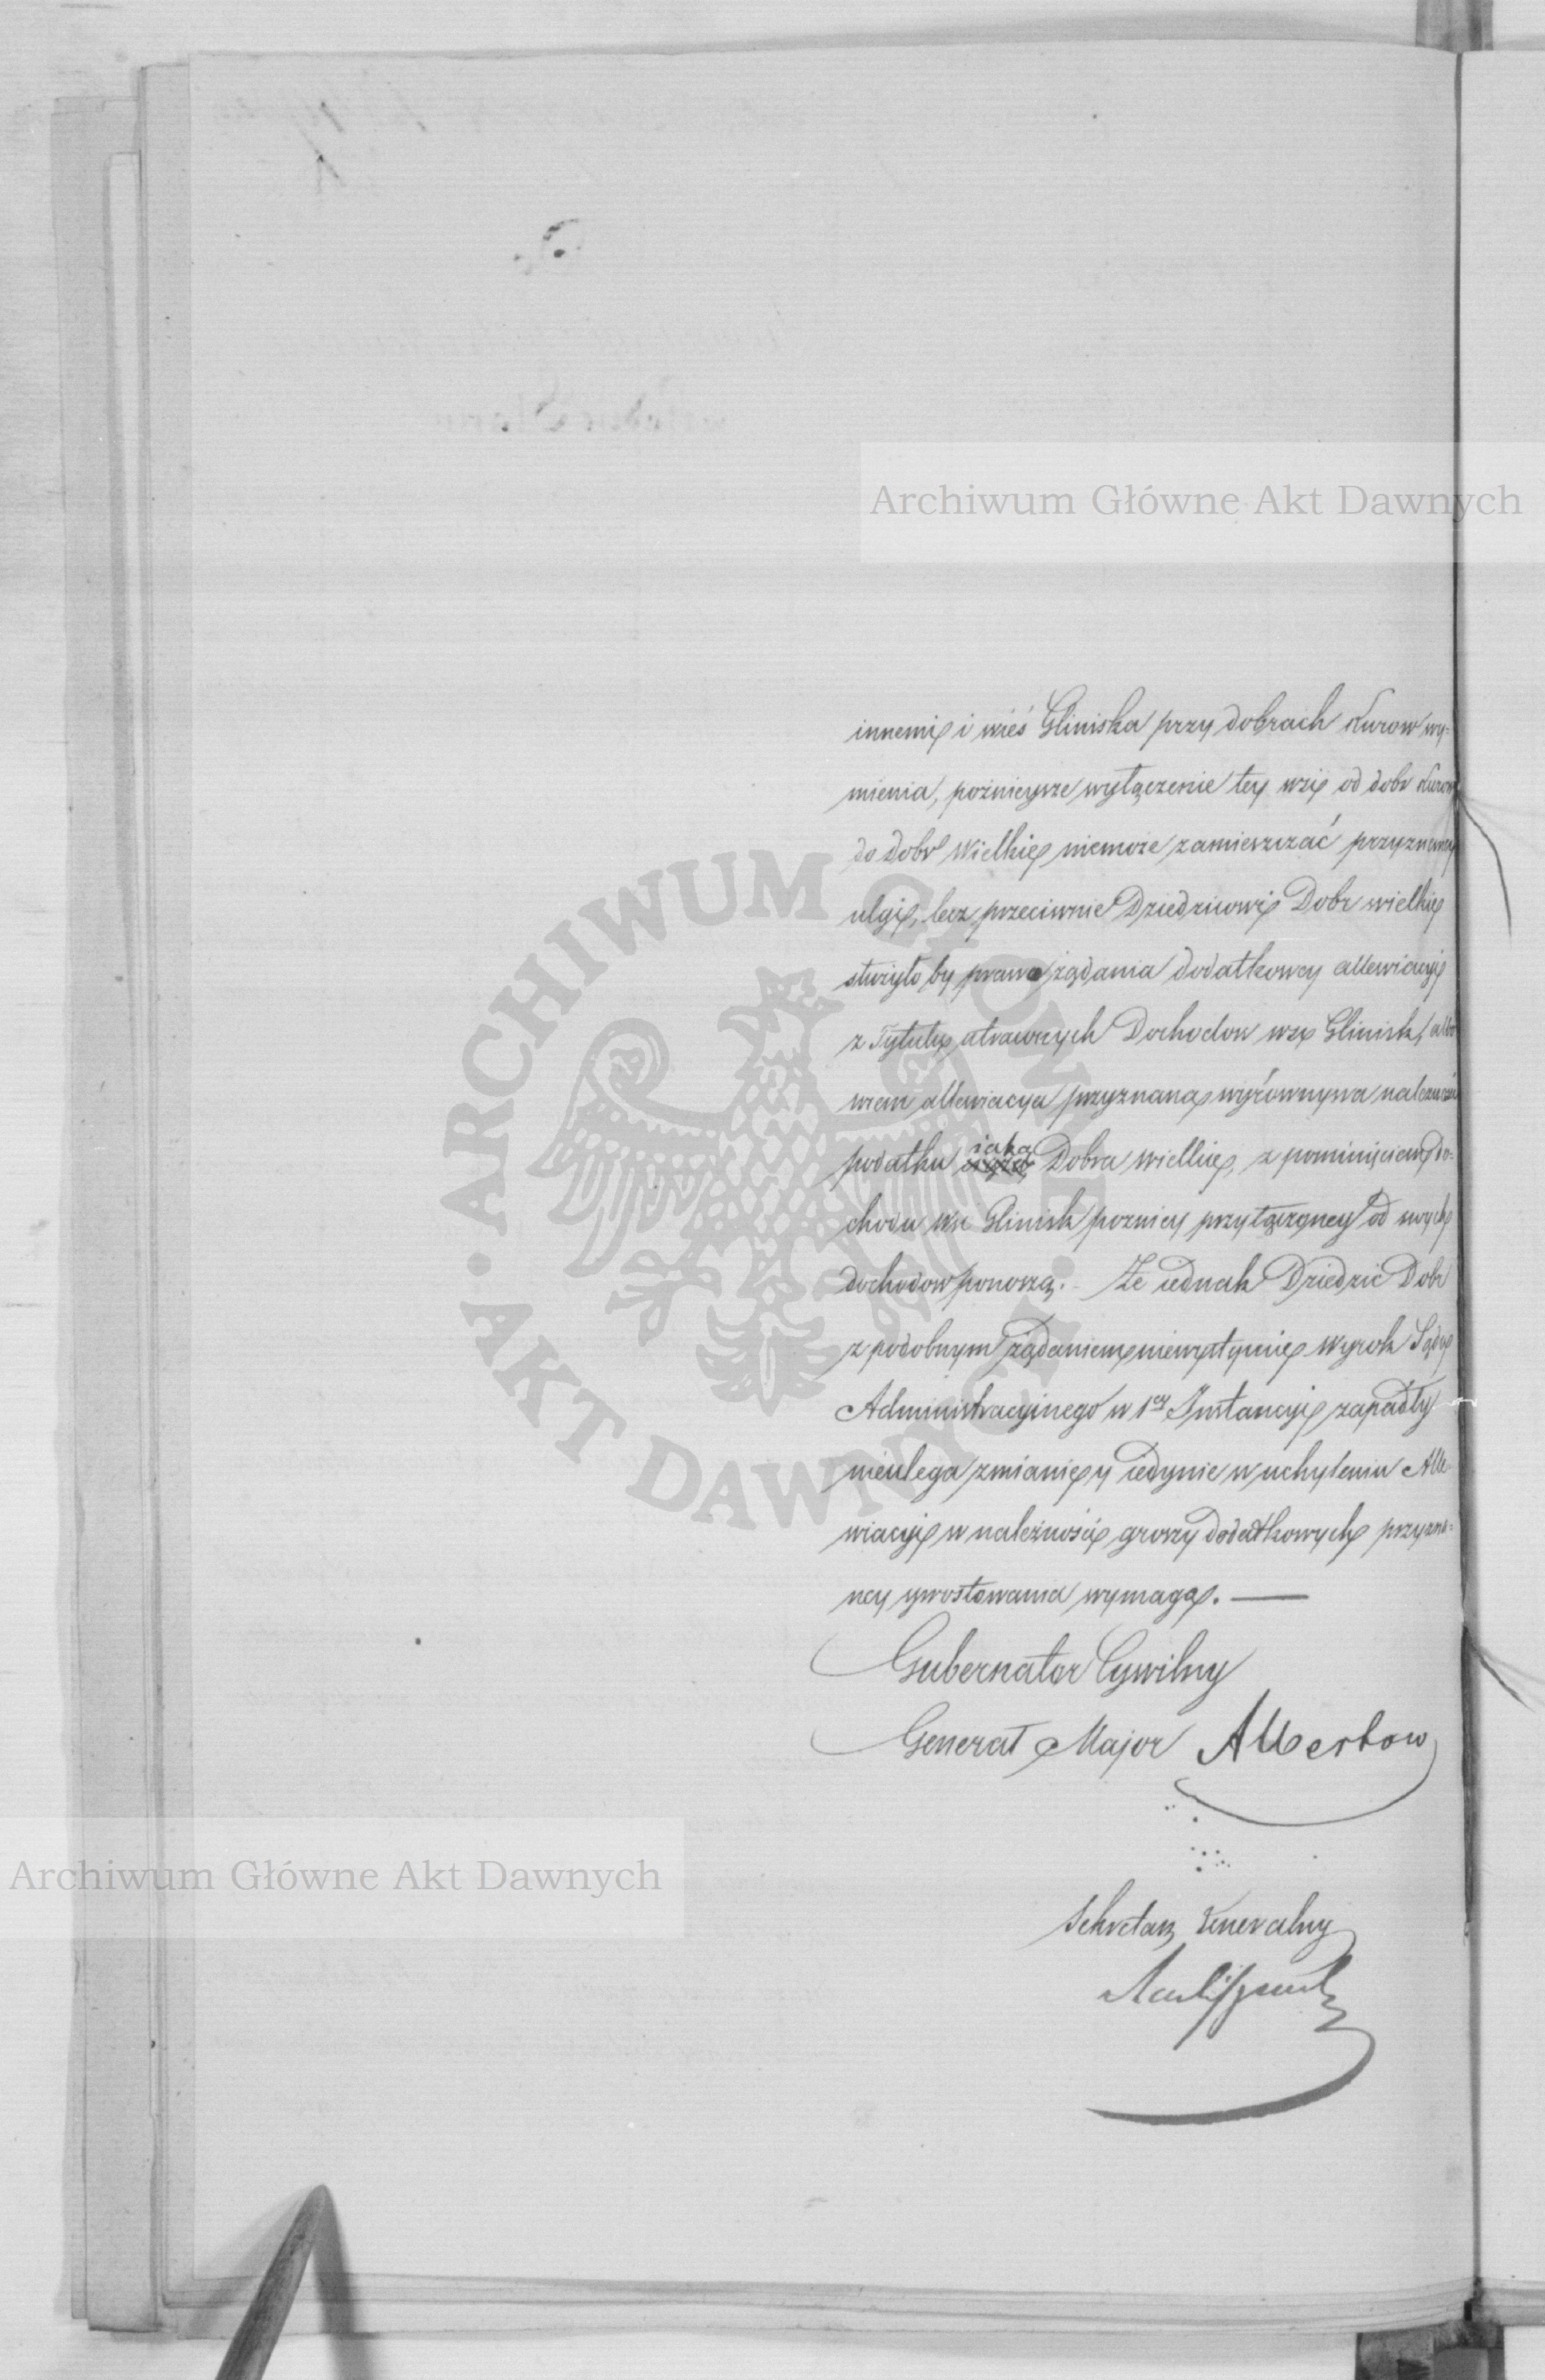 Archiwum Główne Akt Dawnych
innemi i wieś Gliniska przy dobrach Kurow wy-
mienia, poźnieysze wyłączenie tey wsi od dobr Kurow
do dobr Wielkie niemoże zamieszczać przyznaney
ulgi, lecz przeciwnie Dziedzicowi Dobr wielkie
służyło by prawo żądania dodatkowey allewiacyi
z Tytułu utraconych Dochodow wsi Glinisk, albo
wiem allewiacya przyznana wyrównywa należności
podatku iaką Dobra wielkie, z pominięciem do-
chodu wsi Glinisk poźniey przyłączoney od swych
dochodow ponoszą. Ze iednak Dziedzic Dobr
z podobnym żądaniem niewystąpił wyrok Sądu
Administracyinego w 1ey Instancyi zapadły
nieulega zmianie y iedynie w uchyleniu Alle-
wiacyi w należności groszy dodatkowych przyzna-
ney sprostowania wymaga. —
Gubernator Cywilny
Generał Major Albertow
Sekretarz Generalny
ARCHIWUM GŁÓWNE AKT DAWNYCH
Archiwum Główne Akt Dawnych